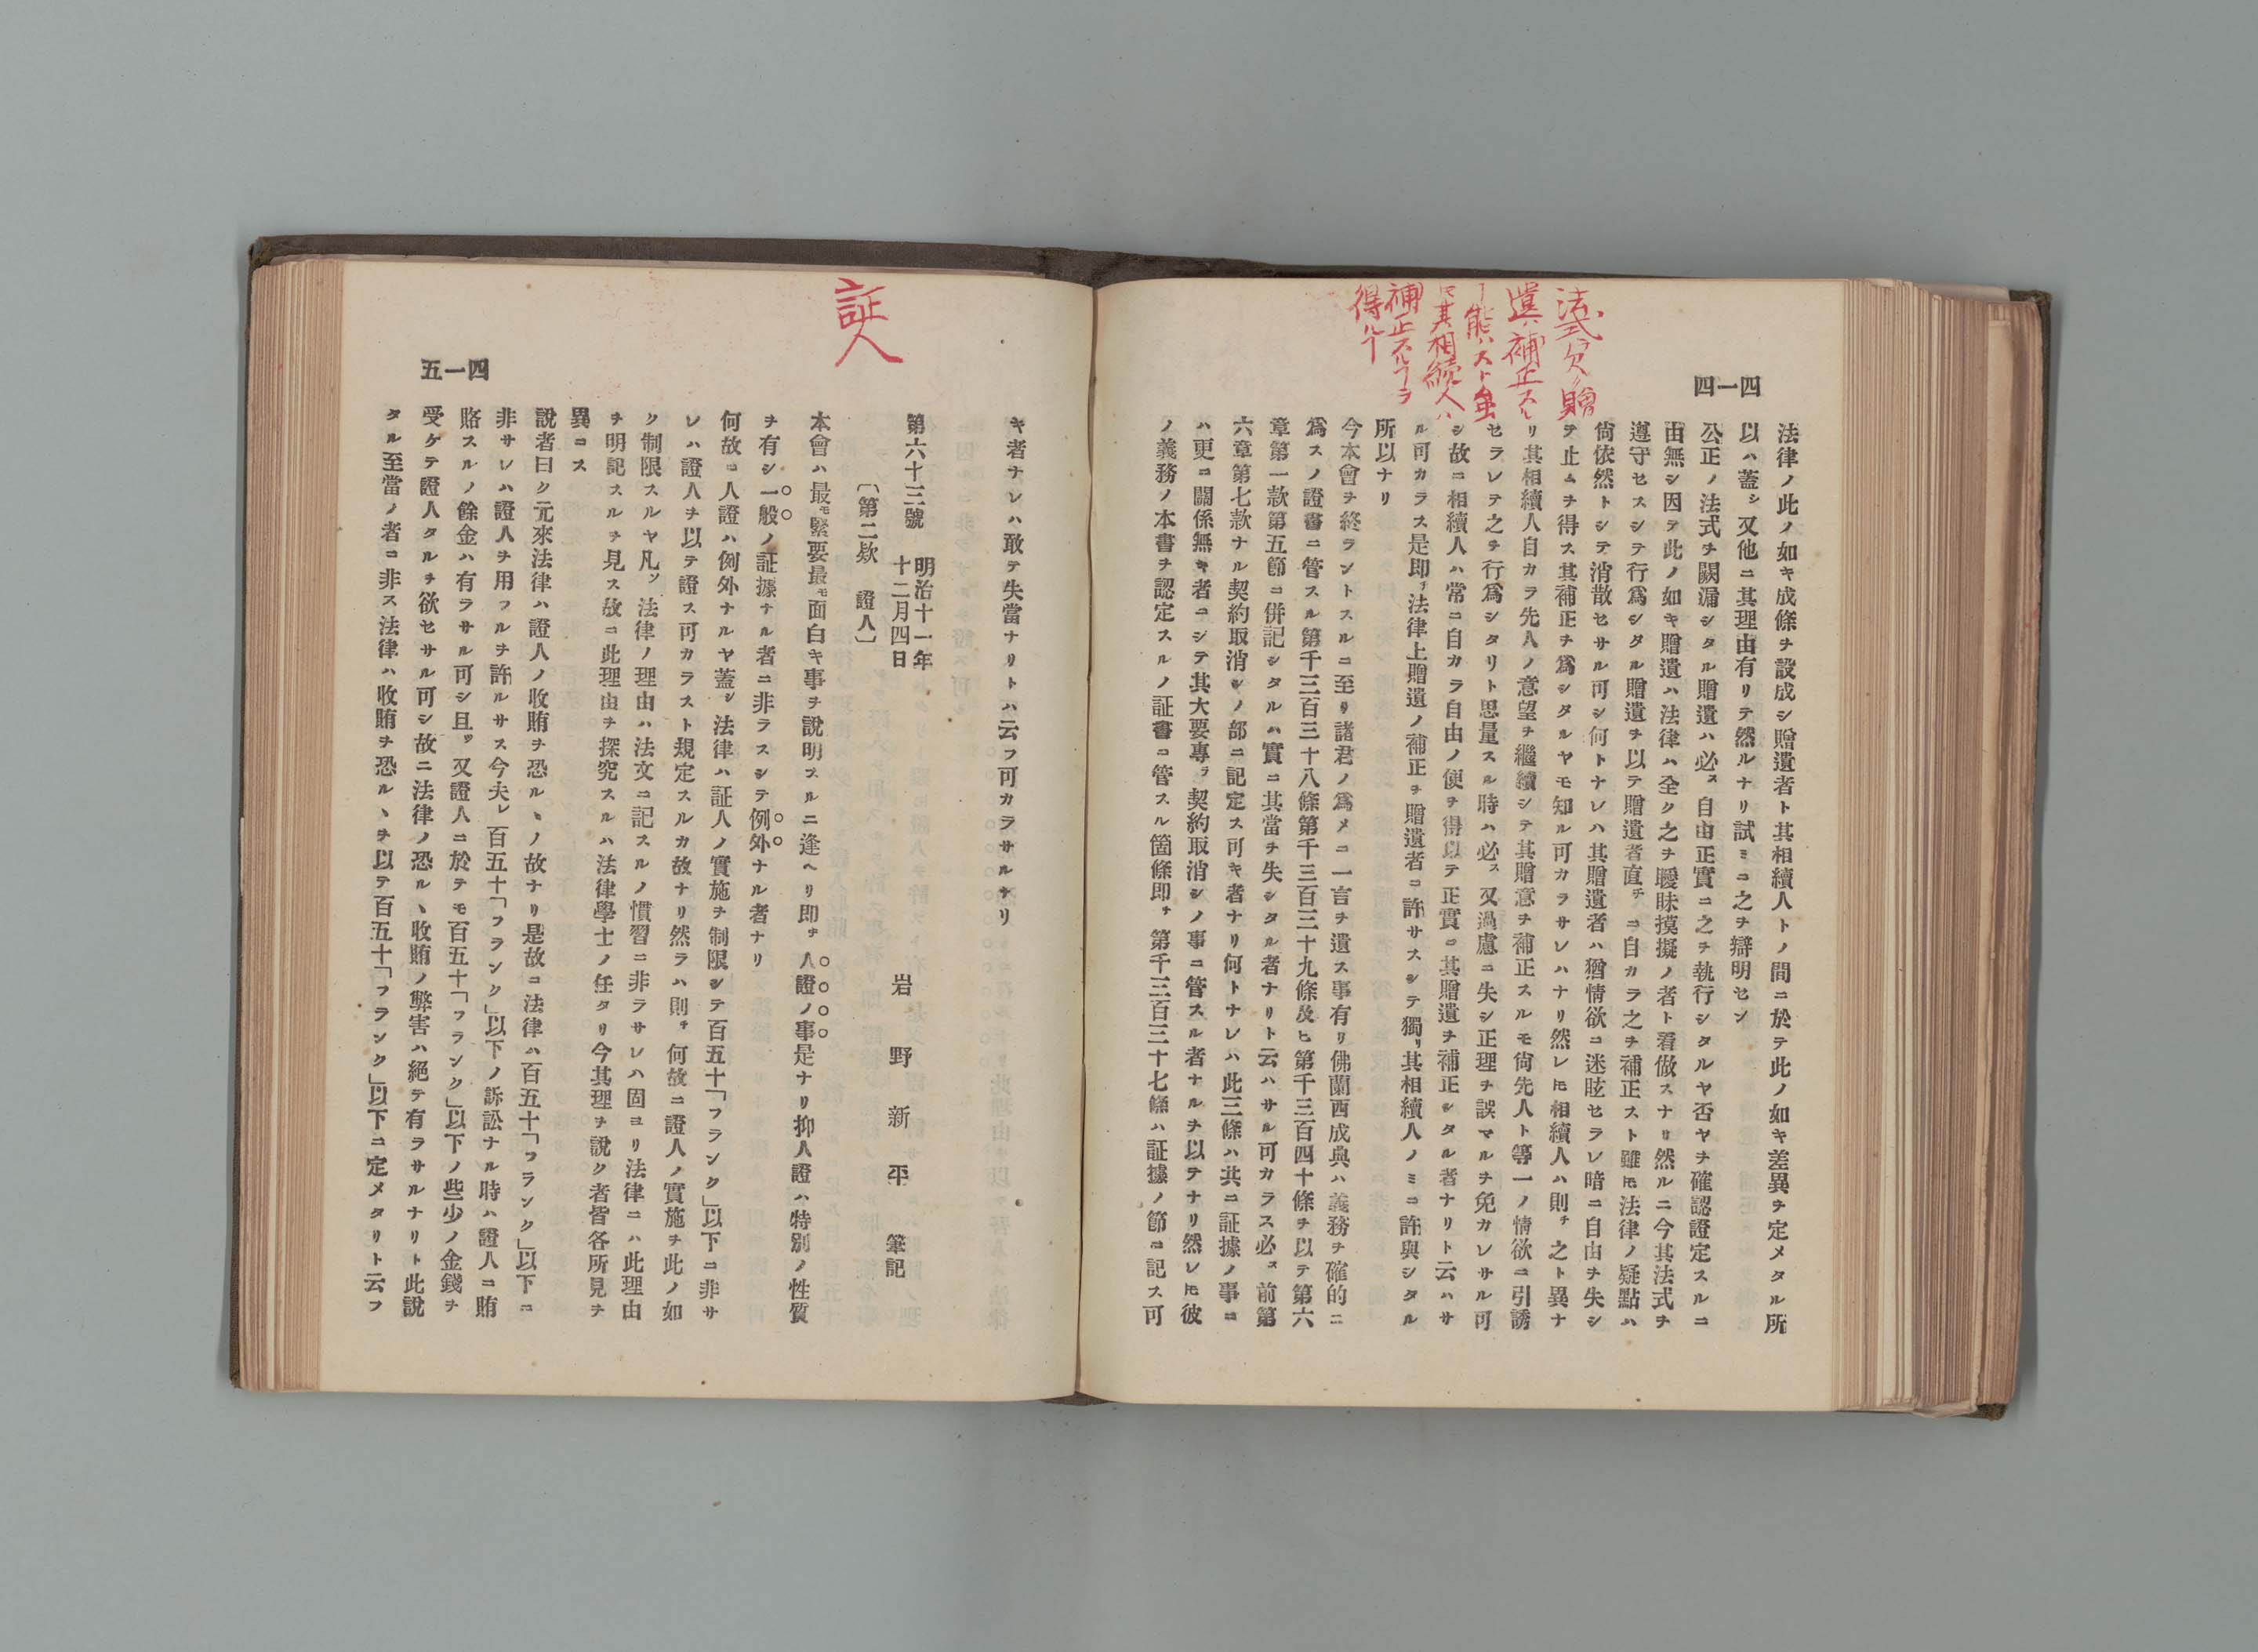 四一四
法式ヲ欠ク贈
遺ハ補正スル
ヿ能ハスト雖
𪜈其相続人ハ
補正スルヿヲ
得ルヿ
法律ノ此ノ如キ成條ヲ設成シ贈遺者ト其相續人トノ間ニ於テ此ノ如キ差異ヲ定メタル所
以ハ蓋シ又他ニ其理由有リテ然ルナリ試ミニ之ヲ辯明セン
公正ノ法式ヲ闕漏シタル贈遺ハ必ス自由正實ニ之ヲ執行シタルヤ否ヤヲ確認證定スルニ
由無シ因テ此ノ如キ贈遺ハ法律ハ全ク之ヲ曖昧摸擬ノ者ト看做スナリ然ルニ今其法式ヲ
遵守セスシテ行爲シタル贈遺ヲ以テ贈遺者直チニ自カラ之ヲ補正スト雖𪜈法律ノ疑點ハ
尙依然トシテ消散セサル可シ何トナレハ其贈遺者ハ猶情欲ニ迷眩セラレ暗ニ自由ヲ失シ
テ止ムヲ得ス其補正ヲ爲シタルヤモ知ル可カラサレハナリ然レ𪜈相續人ハ則チ之ト異ナ
リ其相續人自カラ先人ノ意望ヲ繼續シテ其贈意ヲ補正スルモ尙先人ト等一ノ情欲ニ引誘
セラレテ之ヲ行爲シタリト思量スル時ハ必ス又過慮ニ失シ正理ヲ誤マルヲ免カレサル可
シ故ニ相續人ハ常ニ自カラ自由ノ便ヲ得以テ正實ニ其贈遺ヲ補正シタル者ナリト云ハサ
ル可カラス是即チ法律上贈遺ノ補正ヲ贈遺者ニ許サスシテ獨リ其相續人ノミニ許與シタル
所以ナリ
今本會ヲ終ラントスルニ至リ諸君ノ爲メニ一言ヲ遺ス事有リ佛蘭西成典ハ義務ヲ確的ニ
爲スノ證書ニ管スル第千三百三十八條第千三百三十九條及ヒ第千三百四十條ヲ以テ第六
章第一款第五節ニ併記シタルハ實ニ其當ヲ失シタル者ナリト云ハサル可カラス必ス前第
六章第七款ナル契約取消シノ部ニ記定ス可キ者ナリ何トナレハ此三條ハ共ニ証據ノ事ニ
ハ更ニ關係無キ者ニシテ其大要專ラ契約取消シノ事ニ管スル者ナルヲ以テナリ然レ𪜈彼
ノ義務ノ本書ヲ認定スルノ証書ニ管スル箇條即チ第千三百三十七條ハ証據ノ節ニ記ス可
四一五
証人
キ者ナレハ敢テ失當ナリトハ云フ可カラサルナリ
第六十三號 明治十一年
十二月四日
岩野新平 筆記
〔第二欵 證人〕
本會ハ最モ緊要最モ面白キ事ヲ說明スルニ逢ヘリ即チ人證ノ事是ナリ抑人證ハ特別ノ性質
ヲ有シ一般ノ証據ナル者ニ非ラスシテ例外ナル者ナリ
何故ニ人證ハ例外ナルヤ蓋シ法律ハ証人ノ實施ヲ制限シテ百五十「フランク」以下ニ非サ
レハ證人ヲ以テ證ス可カラスト規定スルカ故ナリ然ラハ則チ何故ニ證人ノ實施ヲ此ノ如
ク制限スルヤ凡ソ法律ノ理由ハ法文ニ記スルノ慣習ニ非ラサレハ固ヨリ法律ニハ此理由
ヲ明記スルヲ見ス故ニ此理由ヲ探究スルハ法律學士ノ任タリ今其理ヲ說ク者皆各所見ヲ
異ニス
說者曰ク元來法律ハ證人ノ收賄ヲ恐ルヽノ故ナリ是故ニ法律ハ百五十「フランク」以下ニ
非サレハ證人ヲ用フルヲ許ルサス今夫レ百五十「フランク」以下ノ訴訟ナル時ハ證人ニ賄
賂スルノ餘金ハ有ラサル可シ且ツ又證人ニ於テモ百五十「フランク」以下ノ些少ノ金錢ヲ
受ケテ證人タルヲ欲セサル可シ故ニ法律ノ恐ルヽ收賄ノ弊害ハ絕テ有ラサルナリト此說
タル至當ノ者ニ非ス法律ハ收賄ヲ恐ルヽヲ以テ百五十「フランク」以下ニ定メタリト云フ